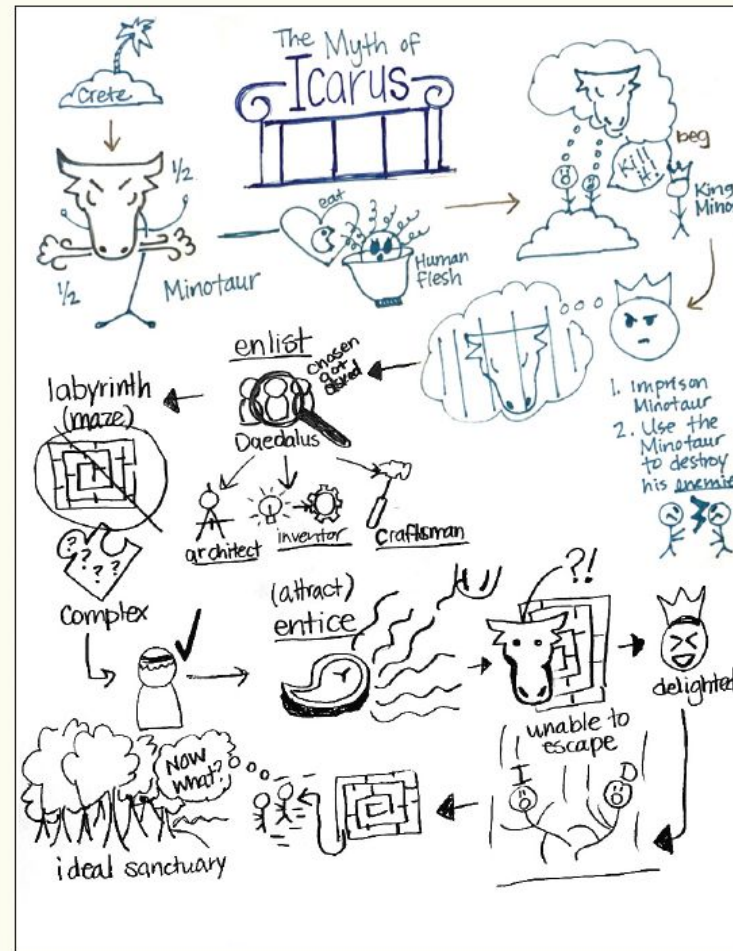 The Myth of
Icarus
Crete
1/2
1/2
Minotaur
eat
Human
Flesh
Kill
it!
beg
King
Mino
1. Imprison
Minotaur
2. Use the
Minotaur
to destroy
his enemie
enlist
chosen
got
asked
Daedalus
architect
inventor
craftsman
labyrinth
(maze)
? ? ? ? ?
complex
(attract)
entice
?!
unable to
escape
delighted
I
D
Now
what?
ideal sanctuary